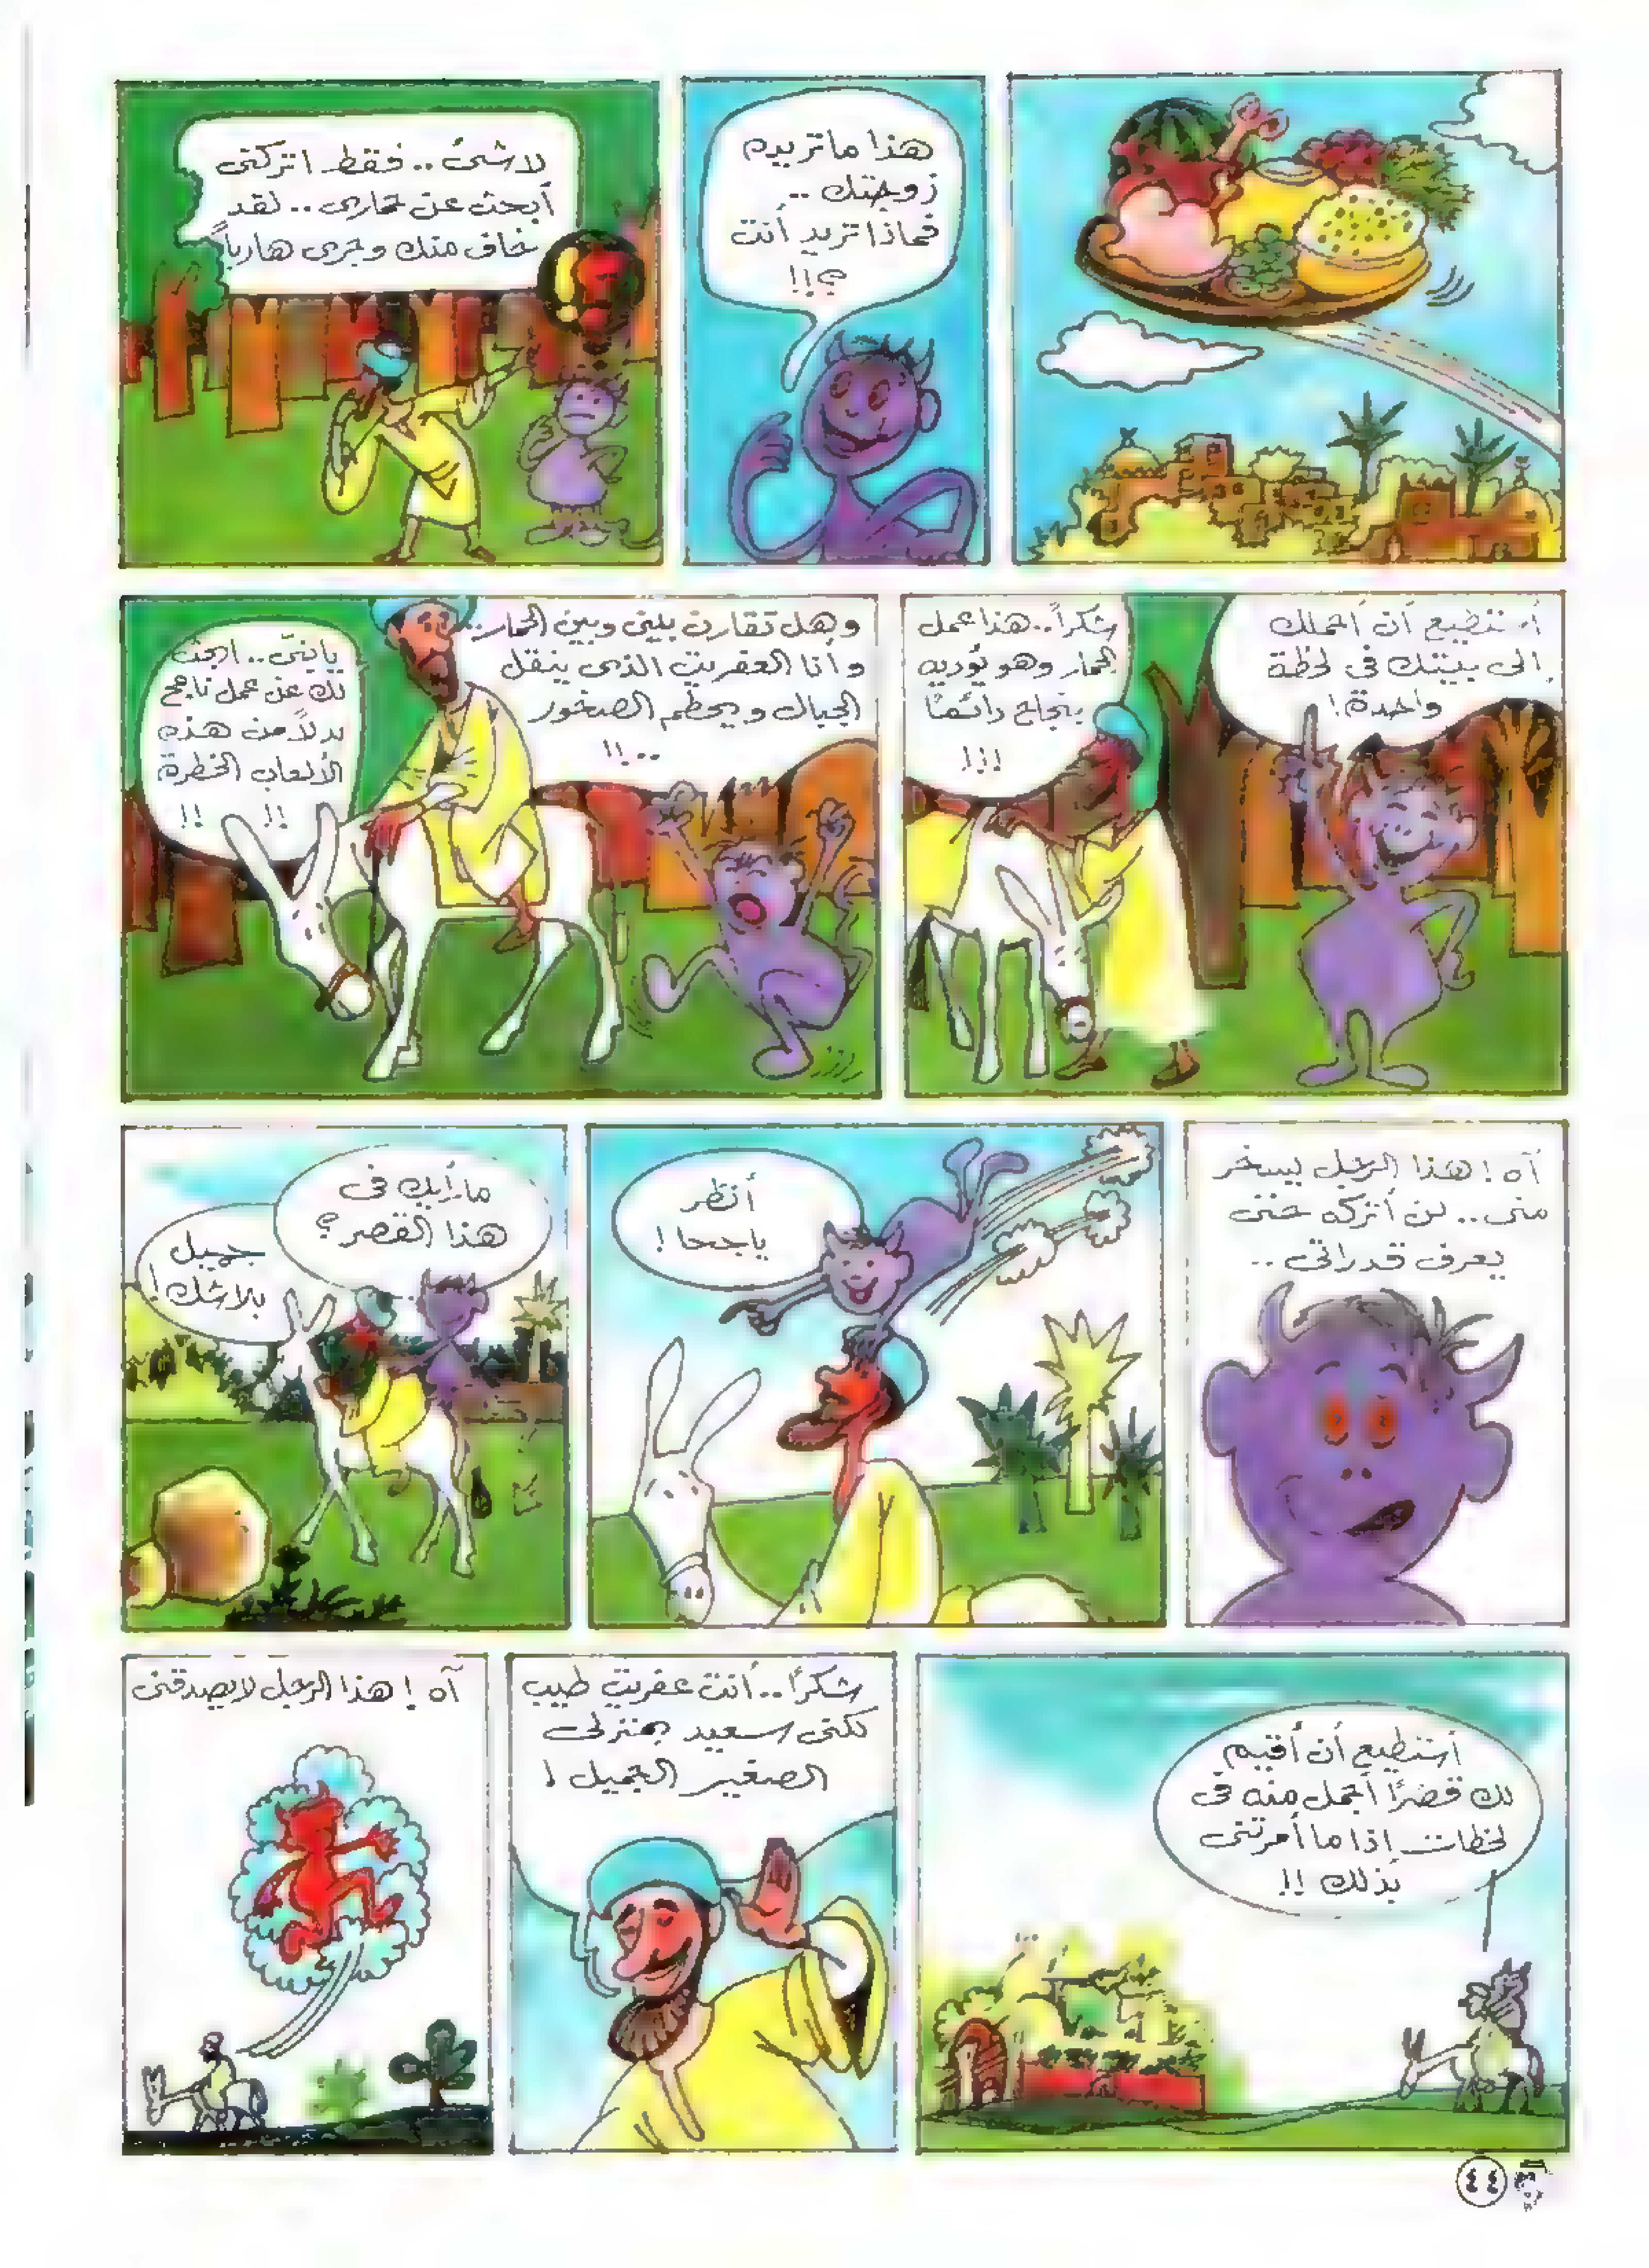 هذا ماتريده
زوجتك ..
فماذا تريد أنت
؟!!
لاشئ .. فقط اتركنى
أبحث عن حمارى .. لقد
خاف منك وجرى هارباً
أستطيع أن أحملك
إلى بيتك فى لحظة
واحدة!
شكراً .. هذا عمل
الحمار وهو يؤديه
بنجاح دائماً
!!!
وهل تقارن بينى وبين الحمار ..
وأنا العفريت الذى ينقل
الجبال ويحطم الصخور
..!!
يابنىّ .. ابحث
لك عن عمل ناجح
بدلاً من هذه
الألعاب الخطرة
!! !!
آه ! هذا الرجل يسخر
منى .. لن أتركه حتى
يعرف قدراتى ..
أنظر
ياجحا !
مارأيك فى
هذا القصر؟
جميل
بلاشك!
أستطيع أن أقيم
لك قصرًا أجمل منه فى
لحظات إذا ما أمرتنى
بذلك !!
شكرًا .. أنت عفريت طيب
لكنى سعيد بمنزلى
الصغير الجميل !
آه ! هذا الرجل لايصدقنى
٤٤